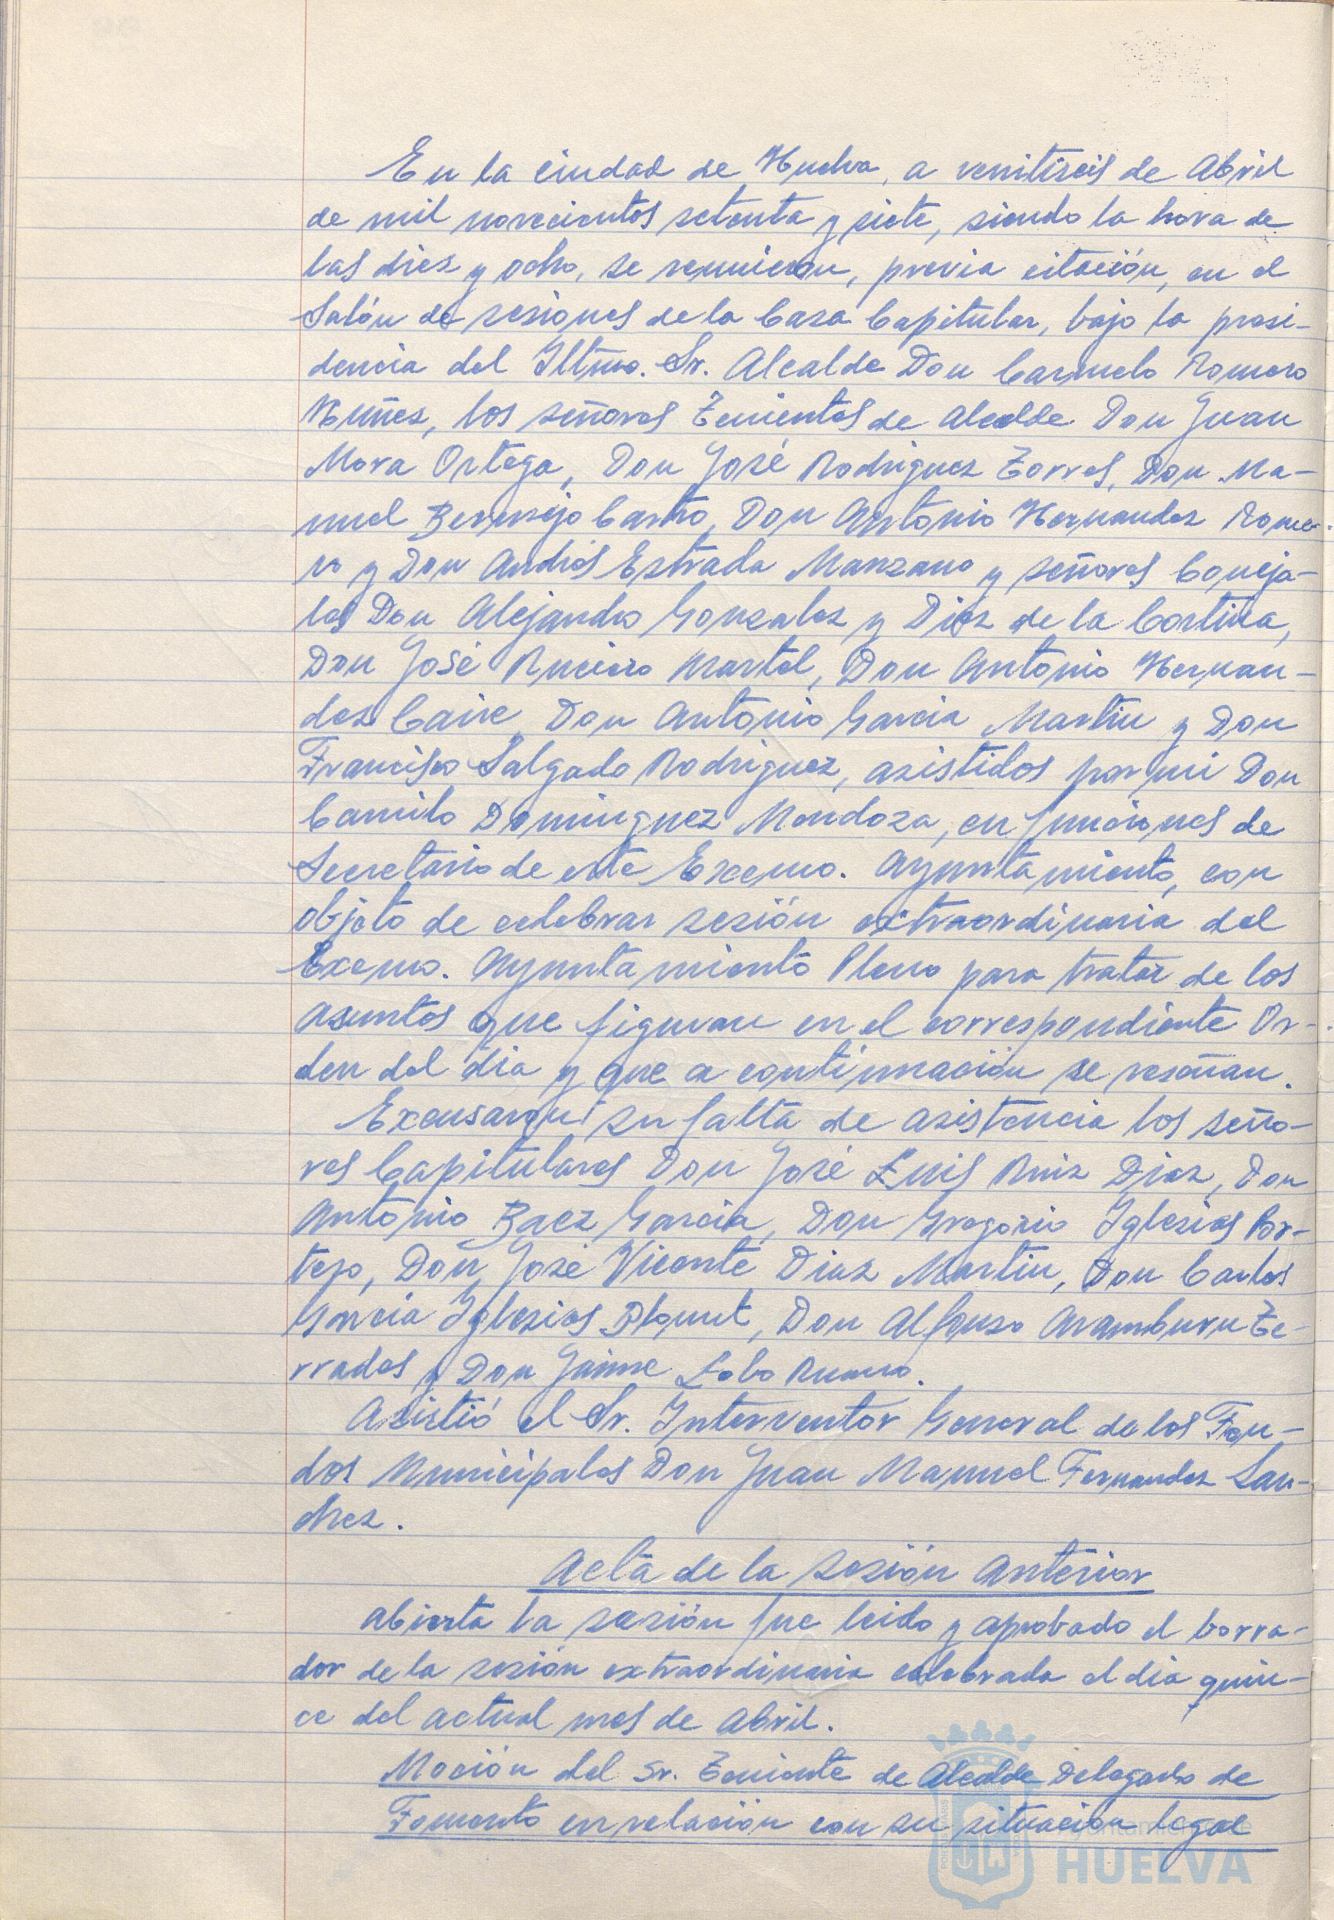 En la ciudad de Huelva, a ventiseis de Abril
de mil novecientos setenta y siete, siendo la hora de
las diez y ocho, se reunieron, previa citación, en el
Salón de sesiones de la Casa Capitular, bajo la presi-
dencia del Iltmo. Sr. Alcalde Don Carmelo Romero
Nuñez, los señores Tenientes de Alcalde Don Juan
Mora Ortega, Don José Rodriguez Torres, Don Ma-
nuel Bermejo Castro, Don Antonio Hernandez Rome-
ro y Don Andrés Estrada Manzano y señores Conceja-
les Don Alejandro Gonzalez y Diez de la Cortina,
Don José Ruciero Martel, Don Antonio Hernan-
dez Caire, Don Antonio Garcia Martin y Don
Francisco Salgado Rodriguez, asistidos por mi Don
Camilo Dominguez Mendoza, en funciones de
Secretario de este Excmo. Ayuntamiento, con
objeto de celebrar sesión extraordinaria del
Excmo. Ayuntamiento Pleno para tratar de los
asuntos que figuran en el correspondiente Or-
den del dia y que a continuación se reseñan.
su falta de asistencia los seño-
res Capitulares Don José Luis Ruiz Diaz, Don
Antonio Baez Garcia, Don Gregorio Iglesias Por-
tero, Don José Vicente Diaz Martin, Don Carlos
Garcia Iglesias Don Alfonso Aramburu Te-
rrades y Don Jaime Lobo
Asistió el Sr. Interventor General de los Fon-
dos Municipales Don Juan Manuel Fernandez San-
chez.
Acta de la sesión anterior
Abierta la sesión fue leido y aprobado el borra-
dor de la sesión extraordinaria celebrada el dia quin-
ce del actual mes de Abril.
Moción del Sr. Teniente de Alcalde Delegado de
Fomento en relación con su situación legal
Ayuntamiento de
HUELVA